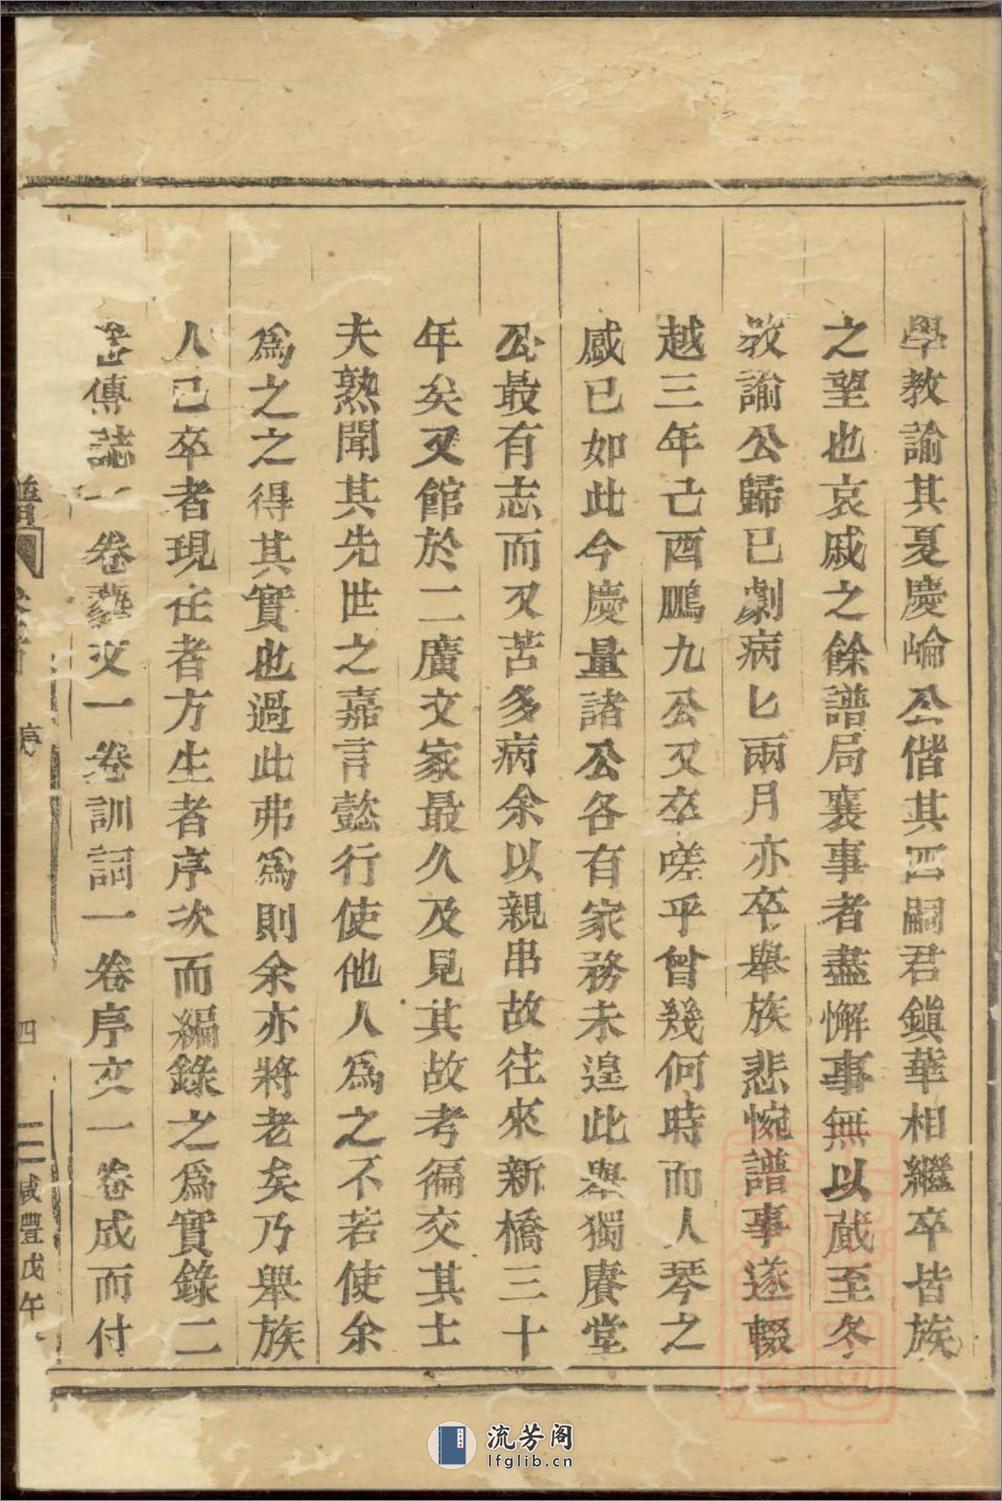 學教諭其夏慶崙公偕其四嗣君鎮華相繼卒皆族
之望也哀戚之餘譜局襄事者盡懈事無以蕆至冬
教諭公歸已劇病匕兩月亦卒舉族悲惋譜事遂輟
越三年己酉鵬九公又卒嗟乎曾幾何時而人琴之
感已如此今慶量諸公各有家務未遑此舉獨賡堂
公最有志而又苦多病余以親串故往來新橋三十
年矣又館於二廣文家最久及見其故考徧交其士
夫熟聞其先世之嘉言懿行使他人為之不若使余
為之之得其實也過此弗為則余亦將老矣乃舉族
人已卒者現在者方生者序次而編錄之為實錄二
卷傳誌一卷藝文一卷訓詞一卷序文一卷成而付
譜
序
四
咸豐戊午
流芳阁
lfglib.cn